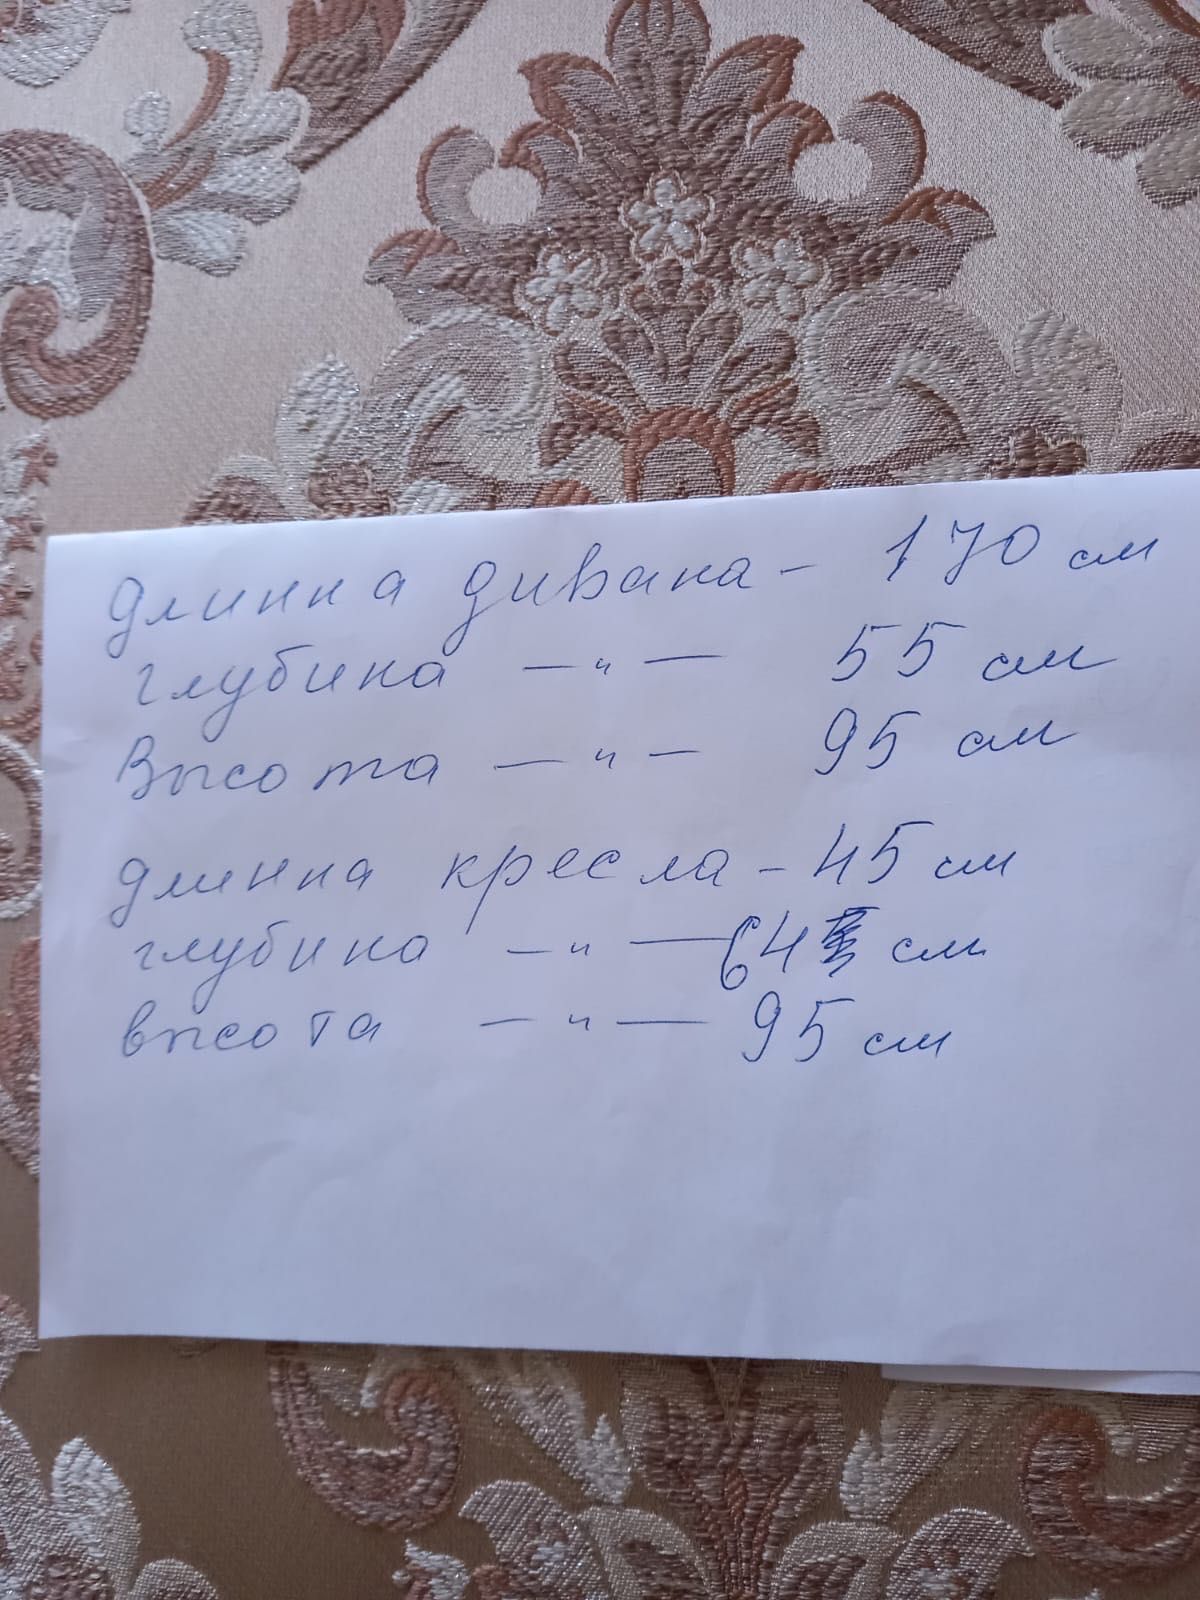 длинна дивана - 170 см
глубина — " — 55 см
Высота — " — 95 см
длинна кресла - 45 см
глубина — " — 64 см
высота — " — 95 см